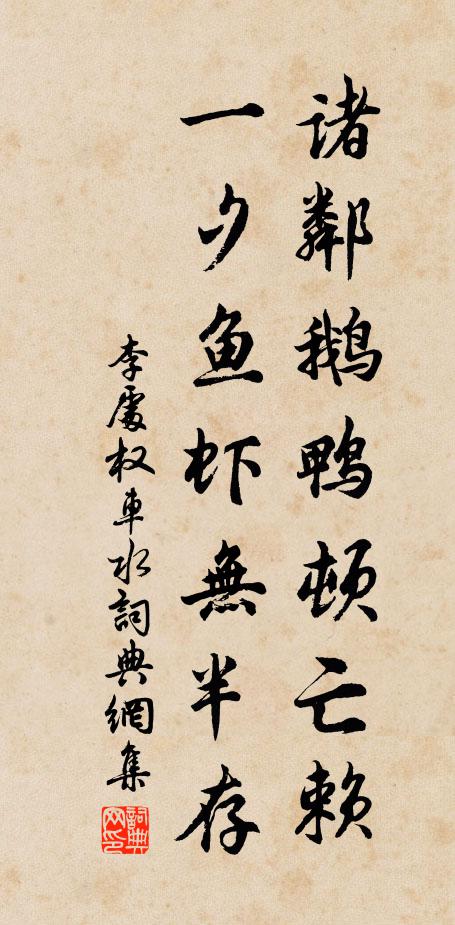 诸鄰鹅鸭顿亡赖
一夕鱼虾無半存
李處权車水詞典網集
詞典网印